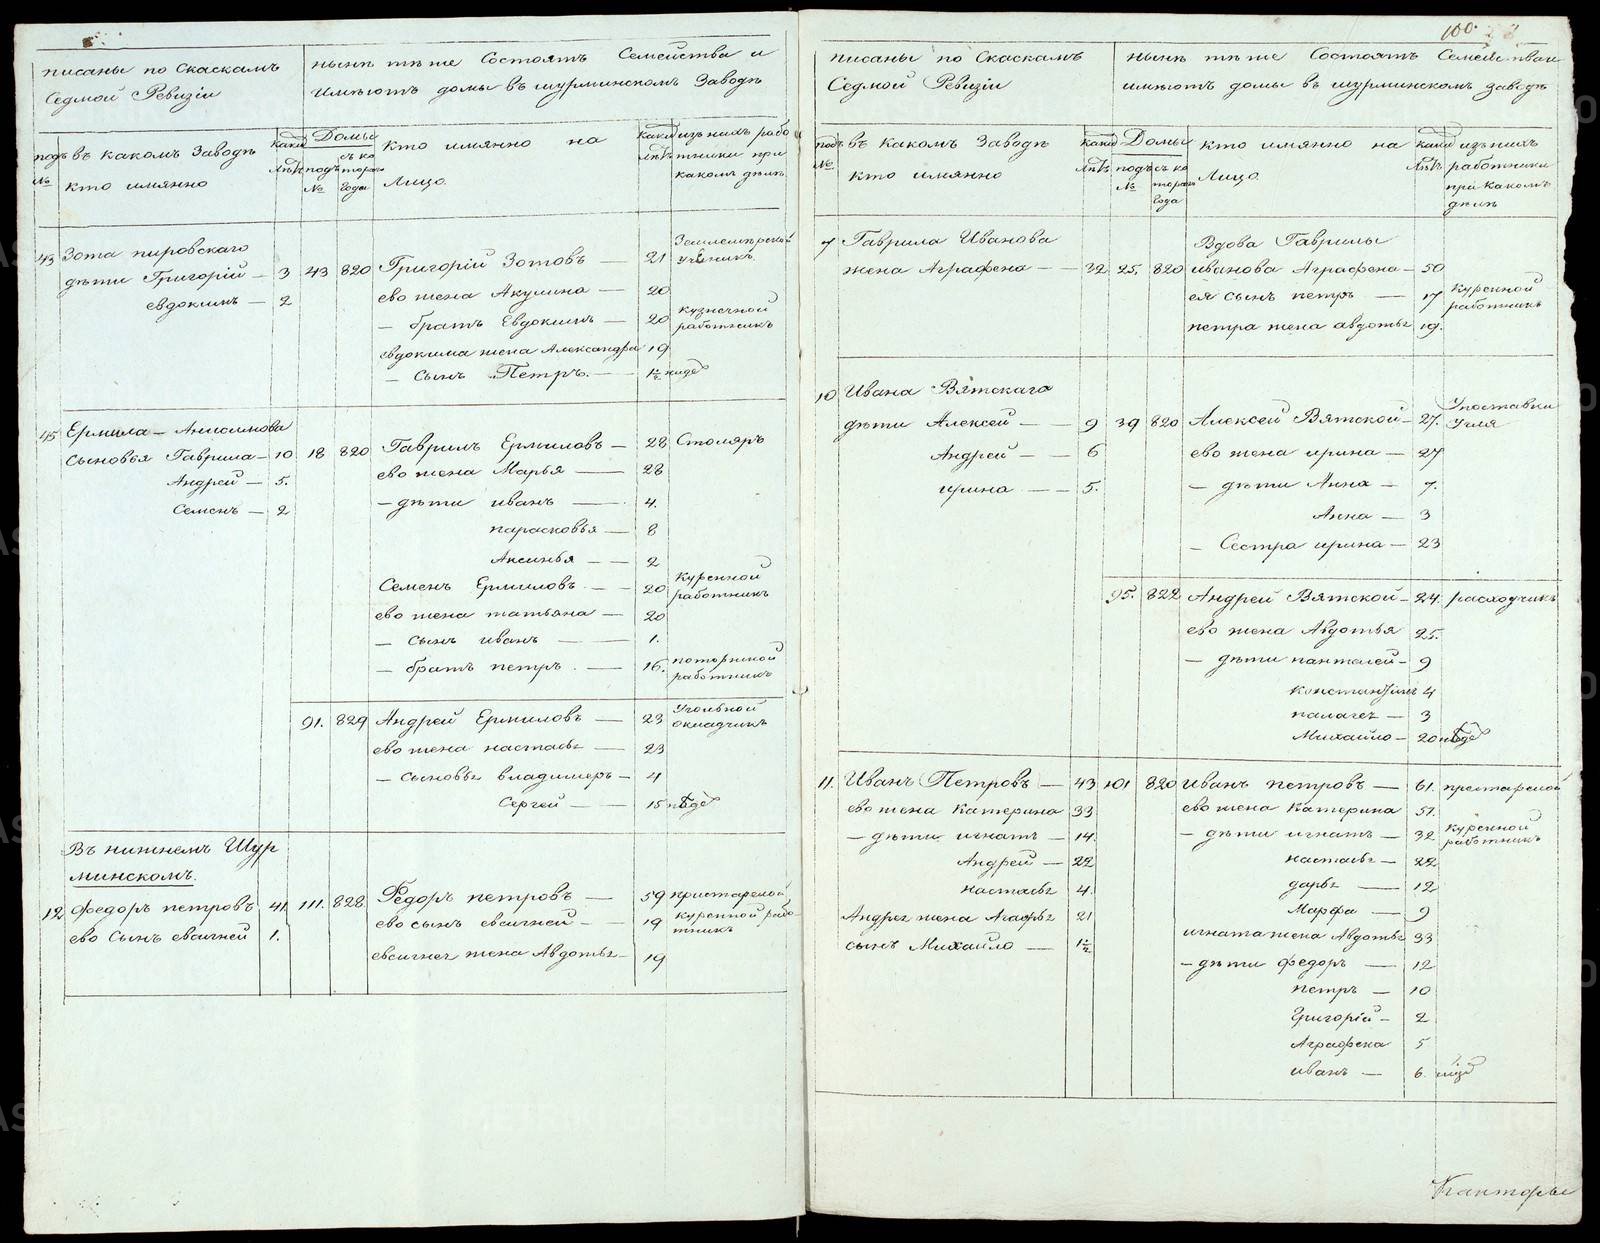 писаны по Скаскамъ
Седмой Ревизiи
нынѣ тѣ же Состоятъ Семейства и
Имѣютъ домы въ шурминскомъ Заводѣ
подъ №
въ какомъ Заводѣ
кто имянно
каки лѣтъ
Домы
подъ №
съ ко тораго года
кто имянно на
Лицо
каки лѣтъ
изъ нихъ рабо
тники при
какомъ дѣлѣ
43 Зота пировскаго
дѣти Григорiй — 3 43 820 Григорiй Зотовъ — 21 Землемѣрской ученикъ
евдокимъ — 2 ево жена Акулина — 20
— братъ Евдокимъ — 20 кузнечной работникъ
евдокима жена Александра 19
— Сынъ Петръ — 1½ нидѣ
45 Ермила — Анисимова
Сыновья Гаврила — 10 18 820 Гаврилъ Ермиловъ — 28 Столяръ
Андрей — 5. ево жена Марья — 28
Семенъ — 2 — дѣти иванъ — 4.
парасковья — 8
Аксинья — 2
Семенъ Ермиловъ — 20 Куренной работникъ
ево жена татьяна — 20
— сынъ иванъ — 1.
— братъ петръ — 16.
работникъ
91. 829 Андрей Ермиловъ — 23 Угольной окладчикъ
ево жена настасья — 23
— сыновья владимеръ — 4
Сергей — 15
Въ нижнемъ Шур
минскомъ.
12 Федоръ петровъ 41 111. 828 Федоръ петровъ — 59 престарелой
ево Сынъ евсигней 1. ево сынъ евсигней — 19 куренной рабо тникъ
евсигнея жена Авдотья — 19
100.
писаны по Скаскамъ
Седмой Ревизiи
нынѣ тѣ же Состоятъ Семейства и
имѣютъ домы въ шурминскомъ заводѣ
подъ №
въ какомъ Заводѣ
кто имянно
каки лѣтъ
Домы
подъ №
съ ко тораго года
кто имянно на
Лицо
каки лѣтъ
изъ нихъ
работники
при какомъ
дѣлѣ
7 Гаврила Иванова Вдова Гаврилы
жена Аграфена — 32 25. 820 иванова Аграфена — 50
ея сынъ петръ — 17 Куренной работникъ
петра жена авдотья 19.
10 Ивана Вятскаго
дѣти Алексей — 9 39 820 Алексей Вятской — 27. Упоставки Угля
Андрей — 6 ево жена ирина — 27
ирина — 5. — дѣти Анна — 7.
Анна — 3
— Сестра ирина — 23
95. 822 Андрей Вятской — 24. расходчикъ
ево жена Авдотья 25.
— дѣти пантелей — 9
константинъ 4
палагея — 3
Михайло — 20
11. Иванъ Петровъ — 43 101 820 Иванъ петровъ — 61. престарелой
ево жена Катерина 33 ево жена Катерина 51.
— дѣти игнатъ — 14. — дѣти игнатъ — 32 Куренной работникъ
Андрей — 22 настасья — 22
настасья 4. дарья — 12
Андрея жена Агафья 21 Марфа — 9
сынъ Михайло — 1½ игната жена Авдотья 33
— дѣти федоръ — 12
петръ — 10
Григорiй — 2
Аграфена 5
иванъ — 6.
Конторы